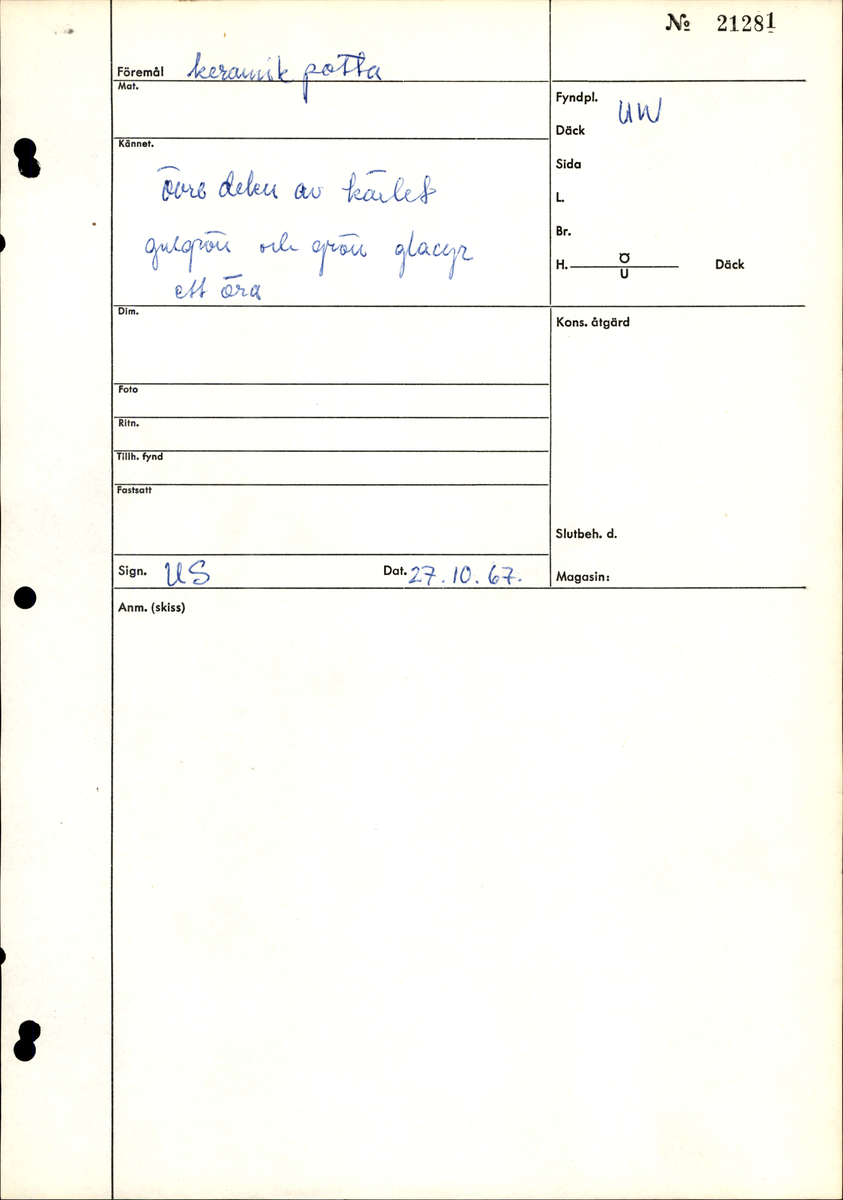 № 21281
Föremål keramik potta
Mat.
Fyndpl. UW
Däck
Kännet.
övre delen av kärlet
gulgrön och grön glacyr
ett öra
Sida
L.
Br.
H. Ö
U Däck
Dim.
Kons. åtgärd
Foto
Ritn.
Tillh. fynd
Fastsatt
Slutbeh. d.
Sign. US Dat. 27.10.67.
Magasin:
Anm. (skiss)